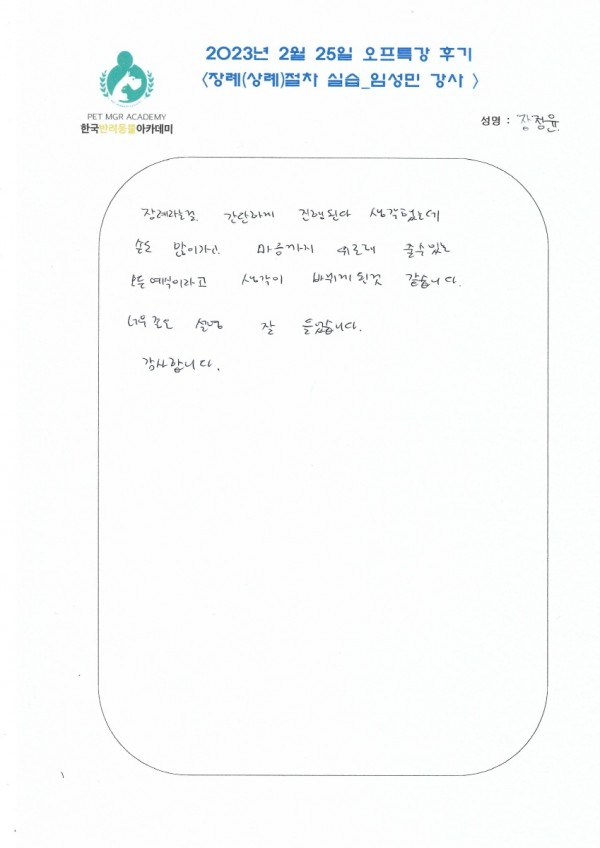 2023년 2월 25일 오프특강 후기
<장례(상례)절차 실습_임성민 강사 >
PET MGR ACADEMY
한국반려동물아카데미
성명 : 장정윤
장례라는걸 간단하게 진행된다 생각했는데
손도 많이가고 마음까지 위로해 줄수있는
모든 예식이라고 생각이 바뀌게 된것 같습니다.
너무 설명 잘 들었습니다.
감사합니다.